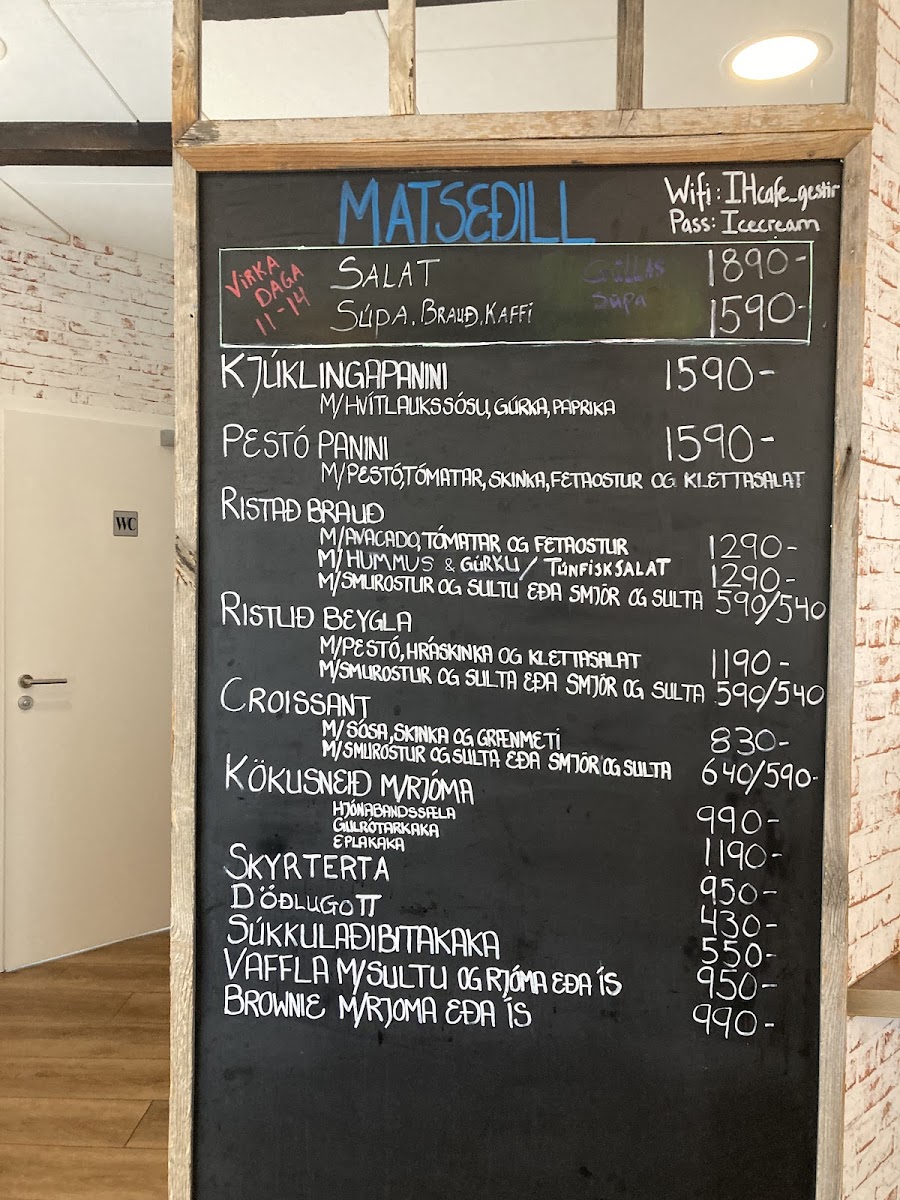 MATSEÐILL
Wifi: IHcafe_gestir
Pass: Icecream
VIRKA DAGA 11-14
SALAT 1890-
GÚLLAS SÚPA
SÚPA, BRAUÐ, KAFFI 1590-
KJÚKLINGAPANINI 1590-
M/HVÍTLAUKSSÓSU, GÚRKA, PAPRIKA
PESTÓ PANINI 1590-
M/PESTÓ, TÓMATAR, SKINKA, FETAOSTUR OG KLETTASALAT
RISTAÐ BRAUÐ
M/AVACADO, TÓMATAR OG FETAOSTUR 1290-
M/HUMMUS & GÚRKU / TÚNFISKSALAT 1290-
M/SMUROSTUR OG SULTU EÐA SMJÖR OG SULTA 590/540
RISTUÐ BEYGLA
M/PESTÓ, HRÁSKINKA OG KLETTASALAT 1190-
M/SMUROSTUR OG SULTA EÐA SMJÖR OG SULTA 590/540
CROISSANT
M/SÓSA, SKINKA OG GRÆNMETI 830-
M/SMUROSTUR OG SULTA EÐA SMJÖR OG SULTA 640/590-
KÖKUSNEIÐ M/RJÓMA
HJÓNABANDSSÆLA 990-
GULRÓTARKAKA
EPLAKAKA 1190-
SKYRTERTA 950-
DÖÐLUGOTT 430-
SÚKKULAÐIBITAKAKA 550-
VAFFLA M/SULTU OG RJÓMA EÐA ÍS 950-
BROWNIE M/RJOMA EÐA ÍS 990-
WC